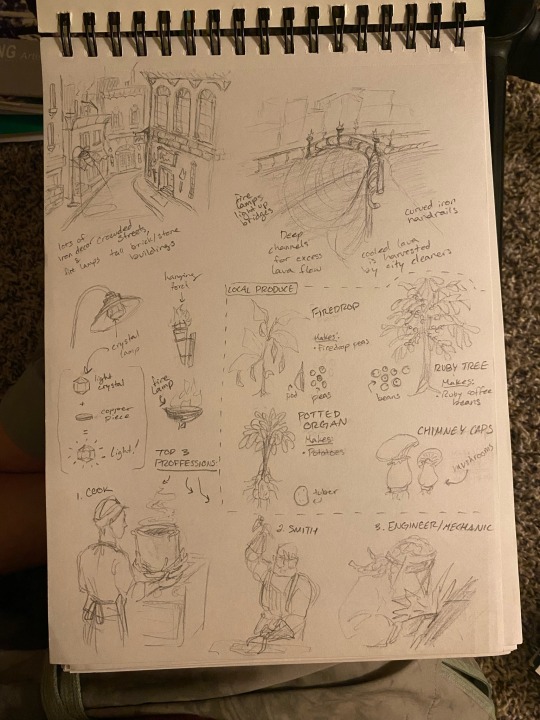 NG
lots of
iron decor
&
fire lamps
crowded
streets,
tall brick/stone
buildings
fire
lamps
light up
bridges
Deep
channels
for excess
lava flow
curved iron
handrails
cooled lava
is harvested
by city cleaners
crystal
lamp
light
crystal
+
copper
piece
=
light!
hanging
torch
fire
lamp
LOCAL PRODUCE
FIREDROP
Makes:
• Firedrop peas
pod
peas
RUBY TREE
Makes:
• Ruby coffee
beans
beans
POTTED
ORGAN
Makes:
• Potatoes
tuber
CHIMNEY CAPS
mushrooms
TOP 3
PROFFESSIONS:
1. COOK
2. SMITH
3. ENGINEER/MECHANIC